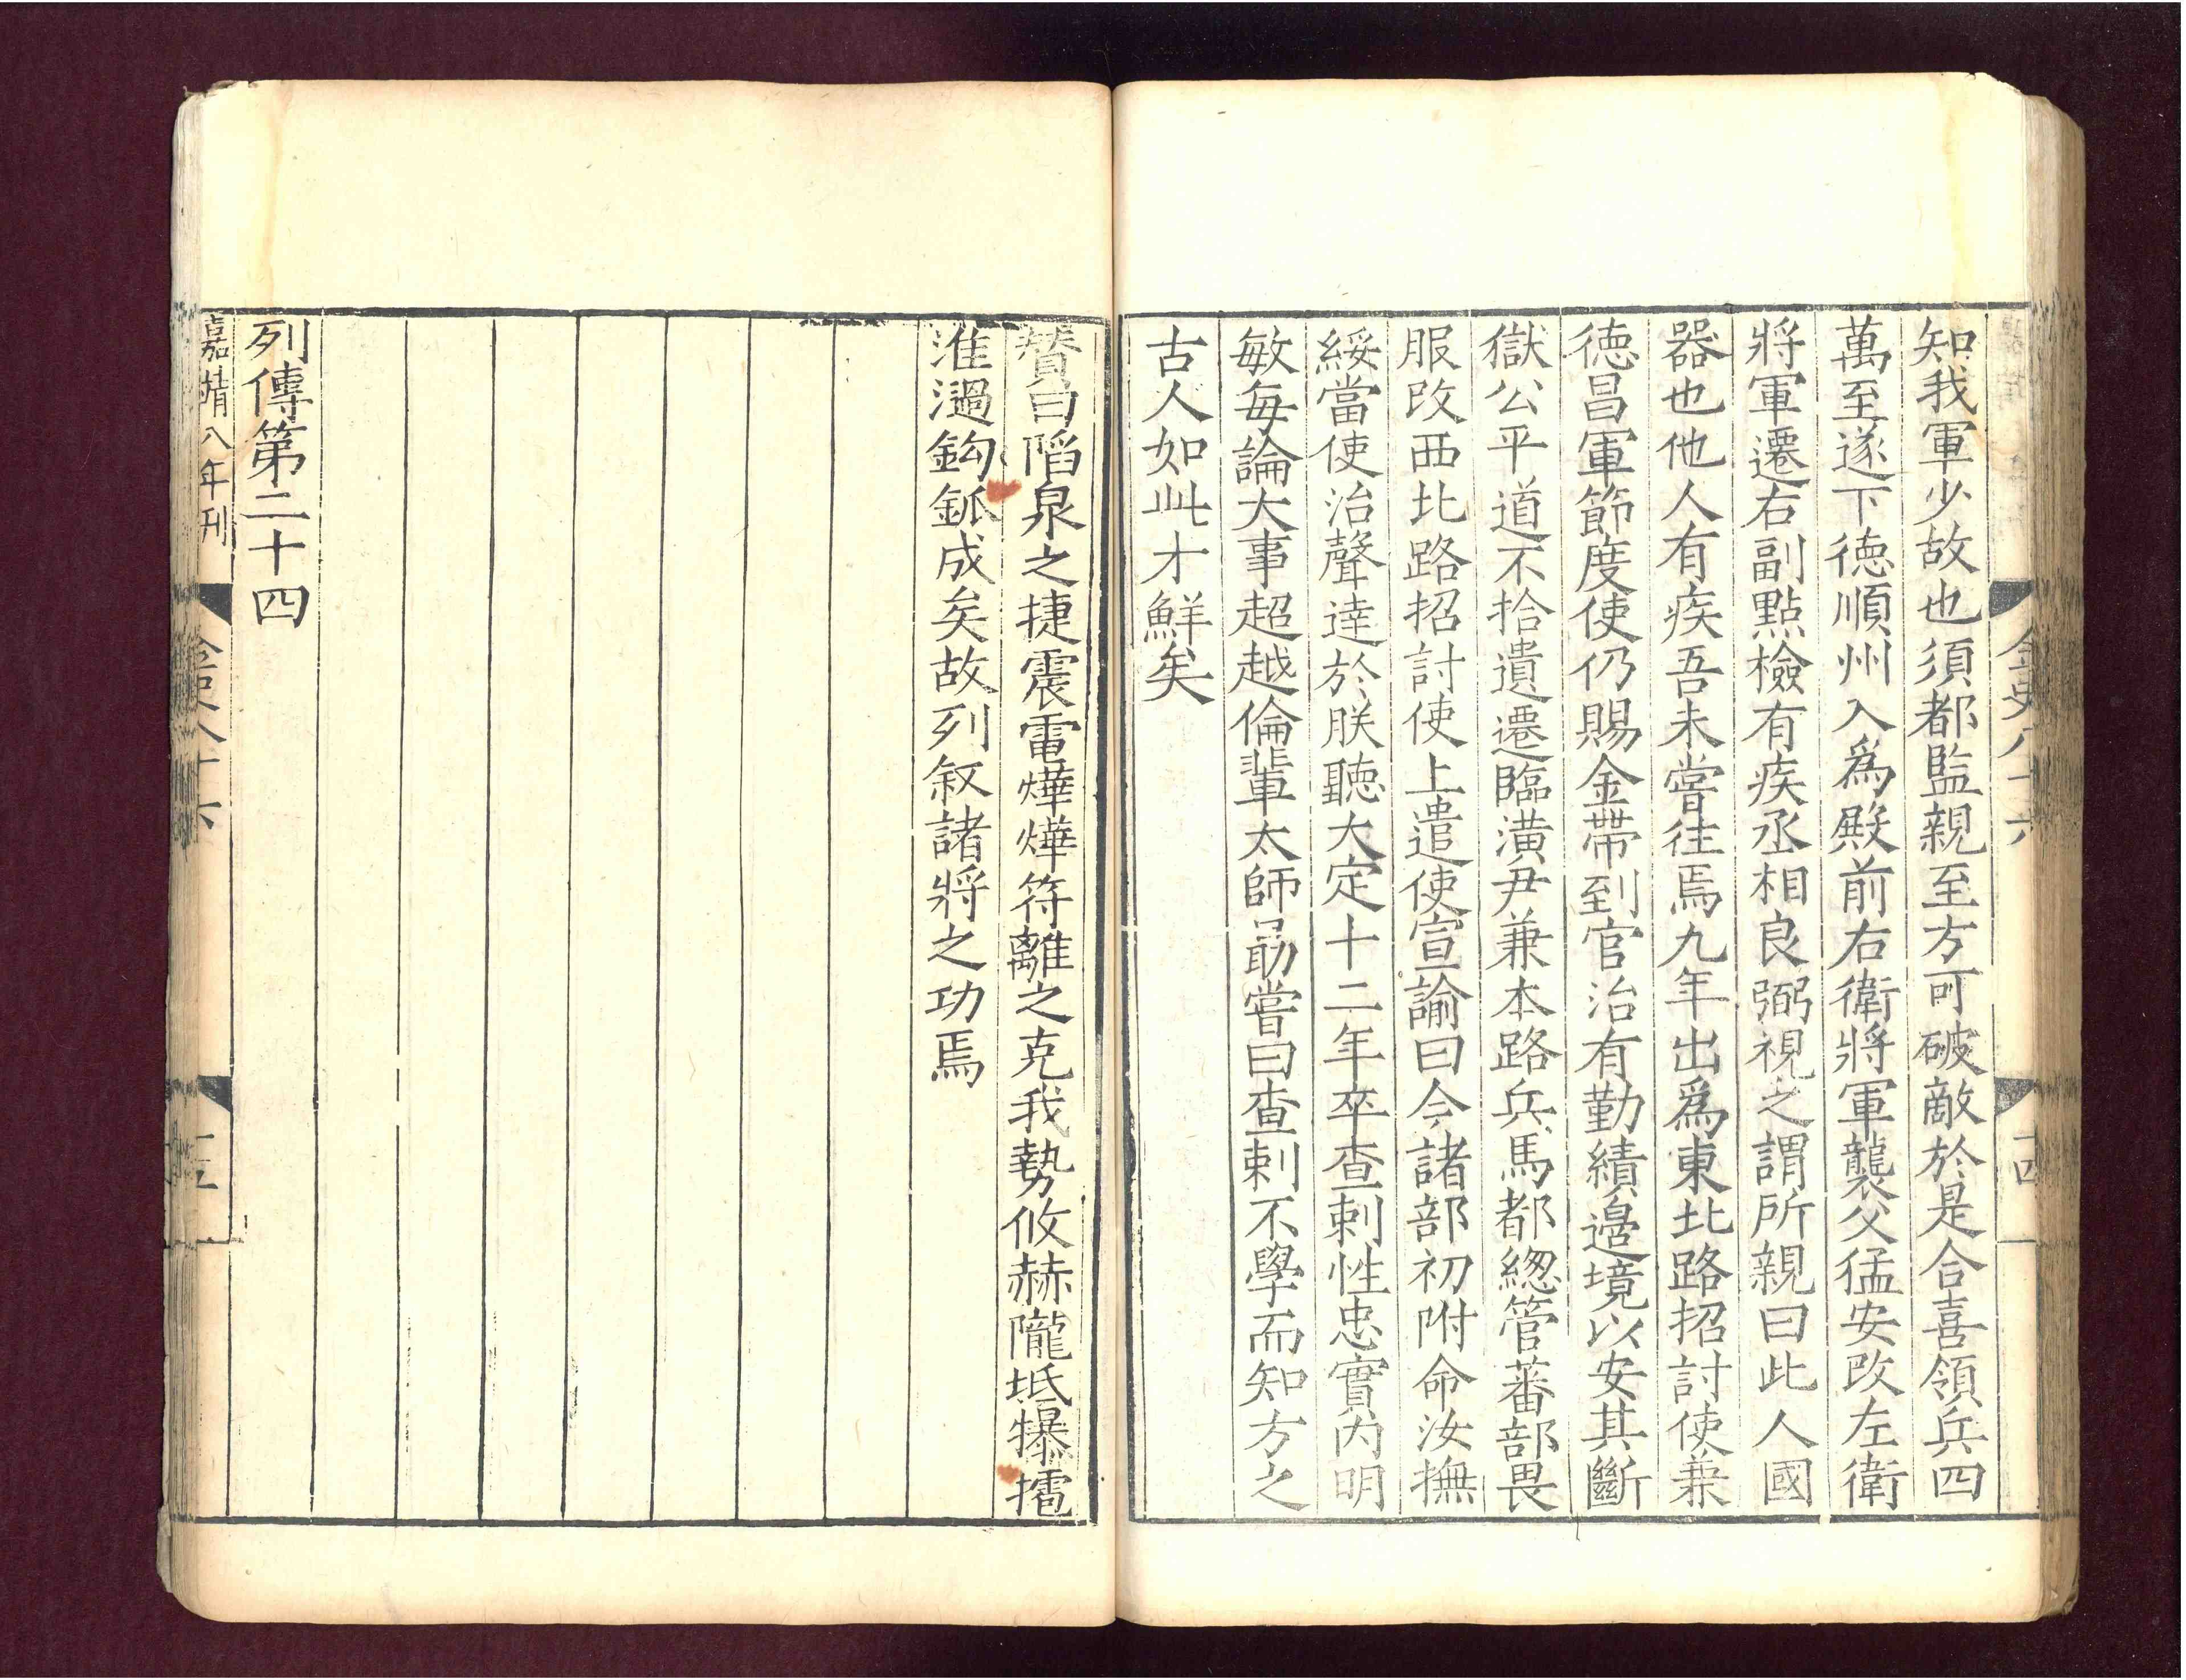 金史八十六
十四
知我軍少故也須都監親至方可破敵於是合喜領兵四
萬至遂下徳順州入爲殿前右衛將軍襲父猛安改左衛
將軍遷右副點檢有疾丞相良弼視之謂所親曰此人國
器也他人有疾吾未嘗往焉九年出爲東北路招討使兼
徳昌軍節度使仍賜金帶到官治有勤績邊境以安其斷
獄公平道不拾遺遷臨潢尹兼本路兵馬都緫管蕃部畏
服改西北路招討使上遣使宣諭曰今諸部初附命汝撫
綏當使治聲逹於朕聽大定十二年卒查剌性忠實内明
敏每論大事超越倫輩太師勗嘗曰查剌不學而知方之
古人如此才鮮矣
贊曰陷泉之捷震電燁燁符離之克我勢攸赫隴坻犦𢹲
淮濄鈎鈲成矣故列叙諸將之功焉
列傳第二十四
嘉靖八年刊
金史八十六
十五